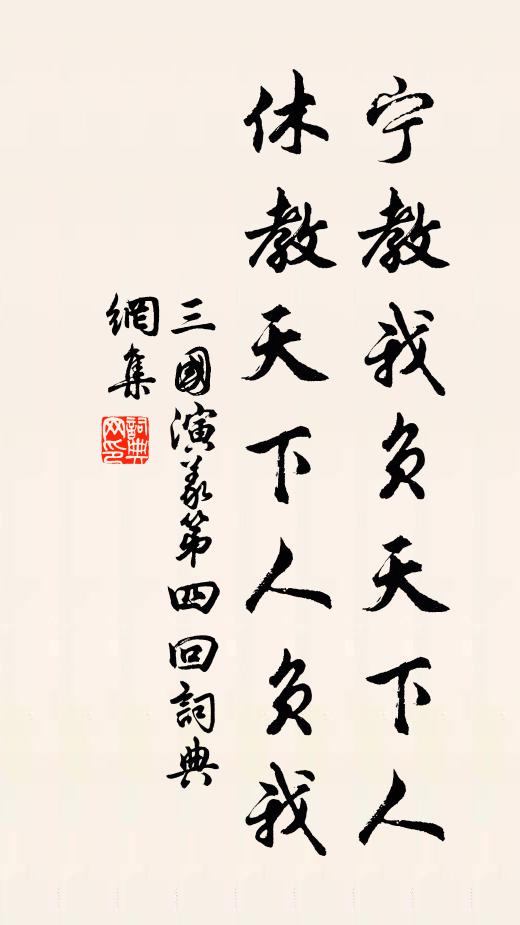 宁教我负天下人
休教天下人负我
三國演義第四回詞典
網集
詞典网印